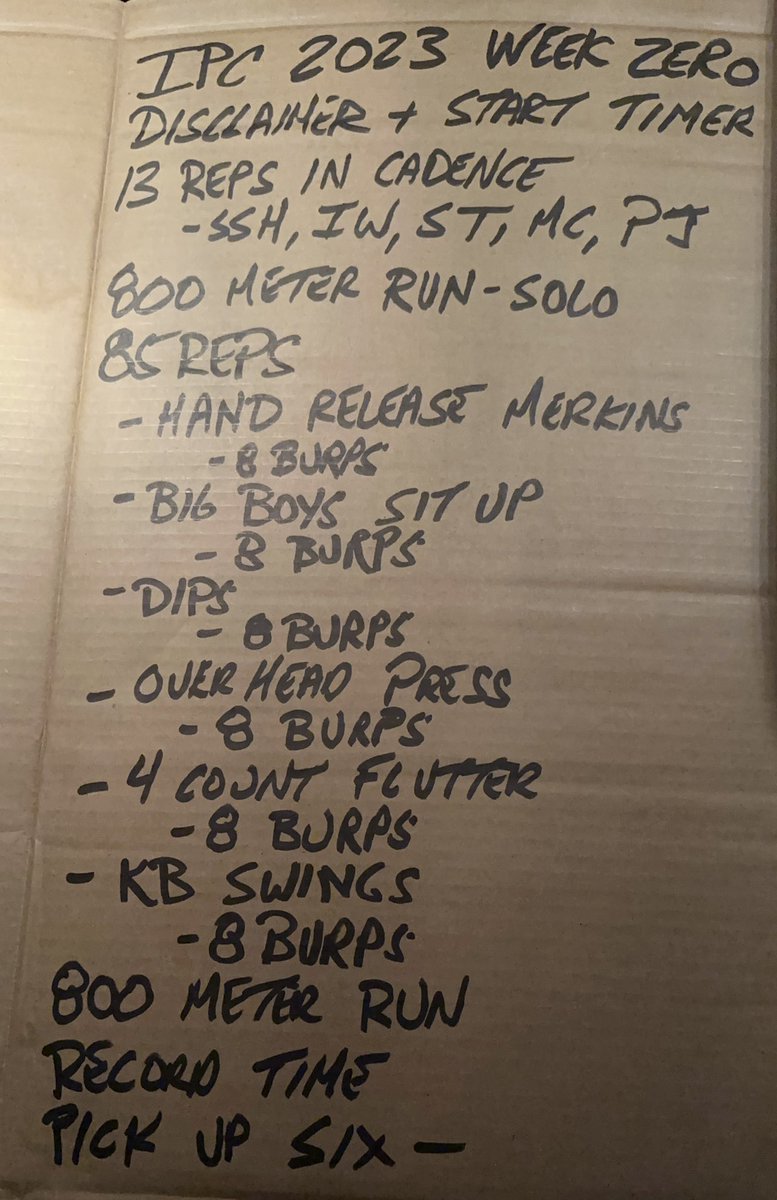 IPC 2023 WEEK ZERO
DISCLAIMER + START TIMER
13 REPS IN CADENCE
-SSH, IW, ST, MC, PJ
800 METER RUN-SOLO
85 REPS
- HAND RELEASE MERKINS
- 8 BURPS
- BIG BOYS SIT UP
- 8 BURPS
- DIPS
- 8 BURPS
- OVER HEAD PRESS
- 8 BURPS
- 4 COUNT FLUTTER
- 8 BURPS
- KB SWINGS
- 8 BURPS
800 METER RUN
RECORD TIME
PICK UP SIX —